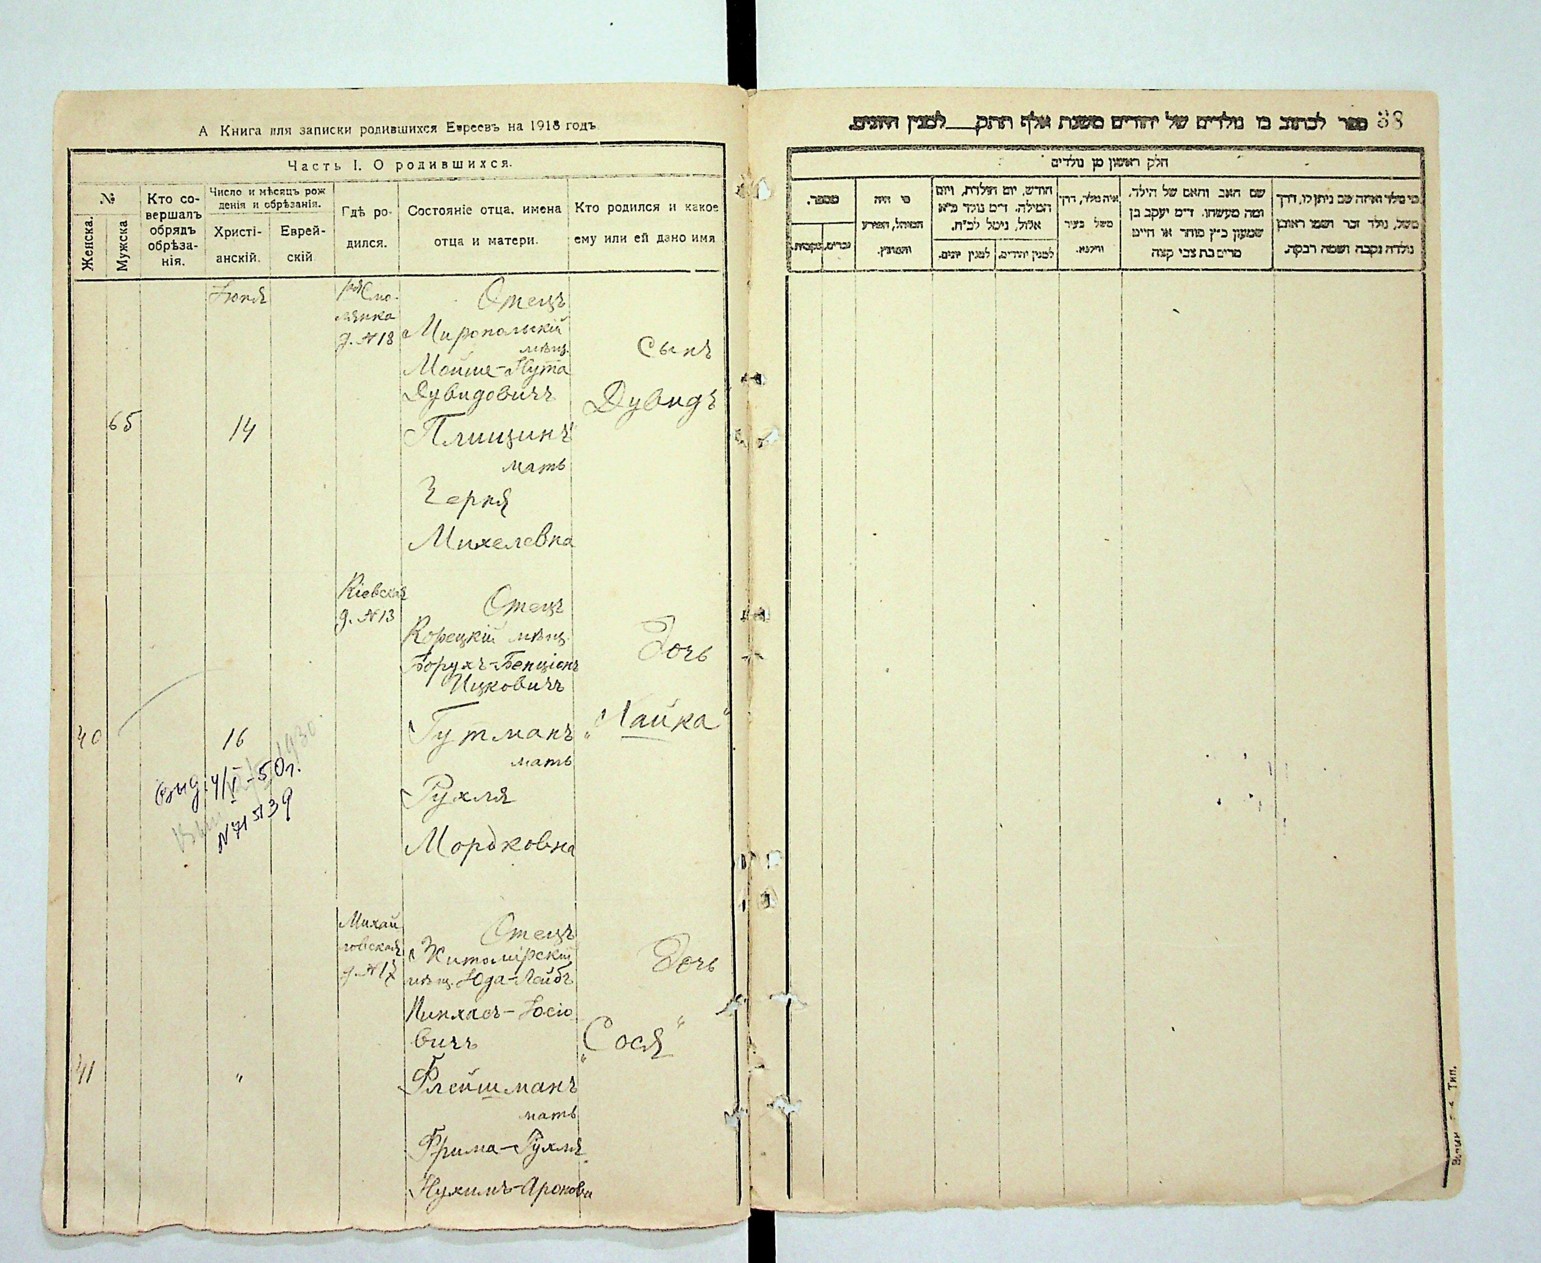 А Книга для записки родившихся Евреевъ на 1918 годъ
Часть I. О родившихся.
№
Женска.
Мужска
Кто со-
вершалъ
обрядъ
обрѣза-
нія.
Число и мѣсяцъ рож
денія и обрѣзанія.
Христі-
анскій.
Еврей-
скій
Гдѣ ро-
дился.
Состояніе отца, имена
отца и матери.
Кто родился и какое
ему или ей дано имя
65
Іюня
14
д. № 18
Отецъ
Миропольскій
мѣщ.
Мойше-Нута
Дувидовичъ
Плищинъ
мать
Черня
Михелевна
Сынъ
Дувидъ
40
16
Кіевская
д. № 13
Отецъ
Корецкій мѣщ.
Борухъ-Бенціонъ
Ицковичъ
Гутманъ
мать
Рухля
Мордковна
Дочь
„Лайка“
выд. 4/V-50г.
1930
41
„
Михай
ловская
д. № 17
Отецъ
Житомірскій
мѣщ. Юда-Лейбъ
Пинхасъ-Іосіо
вичъ
Флейшманъ
мать
Фрима-Рухля
Нухимъ-Аронова
Дочь
„Сося“
ספר לכתוב בו נולדים של יהודים משנת אלף תתק__למנין היונים.
38
חלק ראשון מן נולדים
מספר.
נקבות.
זכרים.
מי היה
המוהל, המפריע
והמוצץ.
חודש, יום הולדת, ויום
המילה. ד״מ נולד כ״א
אלול, נימול לכ״ח.
למנין יונים.
למנין יהודים.
איה נולד, דרך
משל בעיר
ווילנא.
שם האב והאם של הילד.
ומה מעשהו. ד״מ יעקב בן
שמעון כ״ץ סוחר או חייט
מרים בת צבי קצוה
מי נולד ואיזה שם ניתן לו, דרך
משל, נולד זכר ושמו ראובן
נולדה נקבה ושמה רבקה.
Тип.